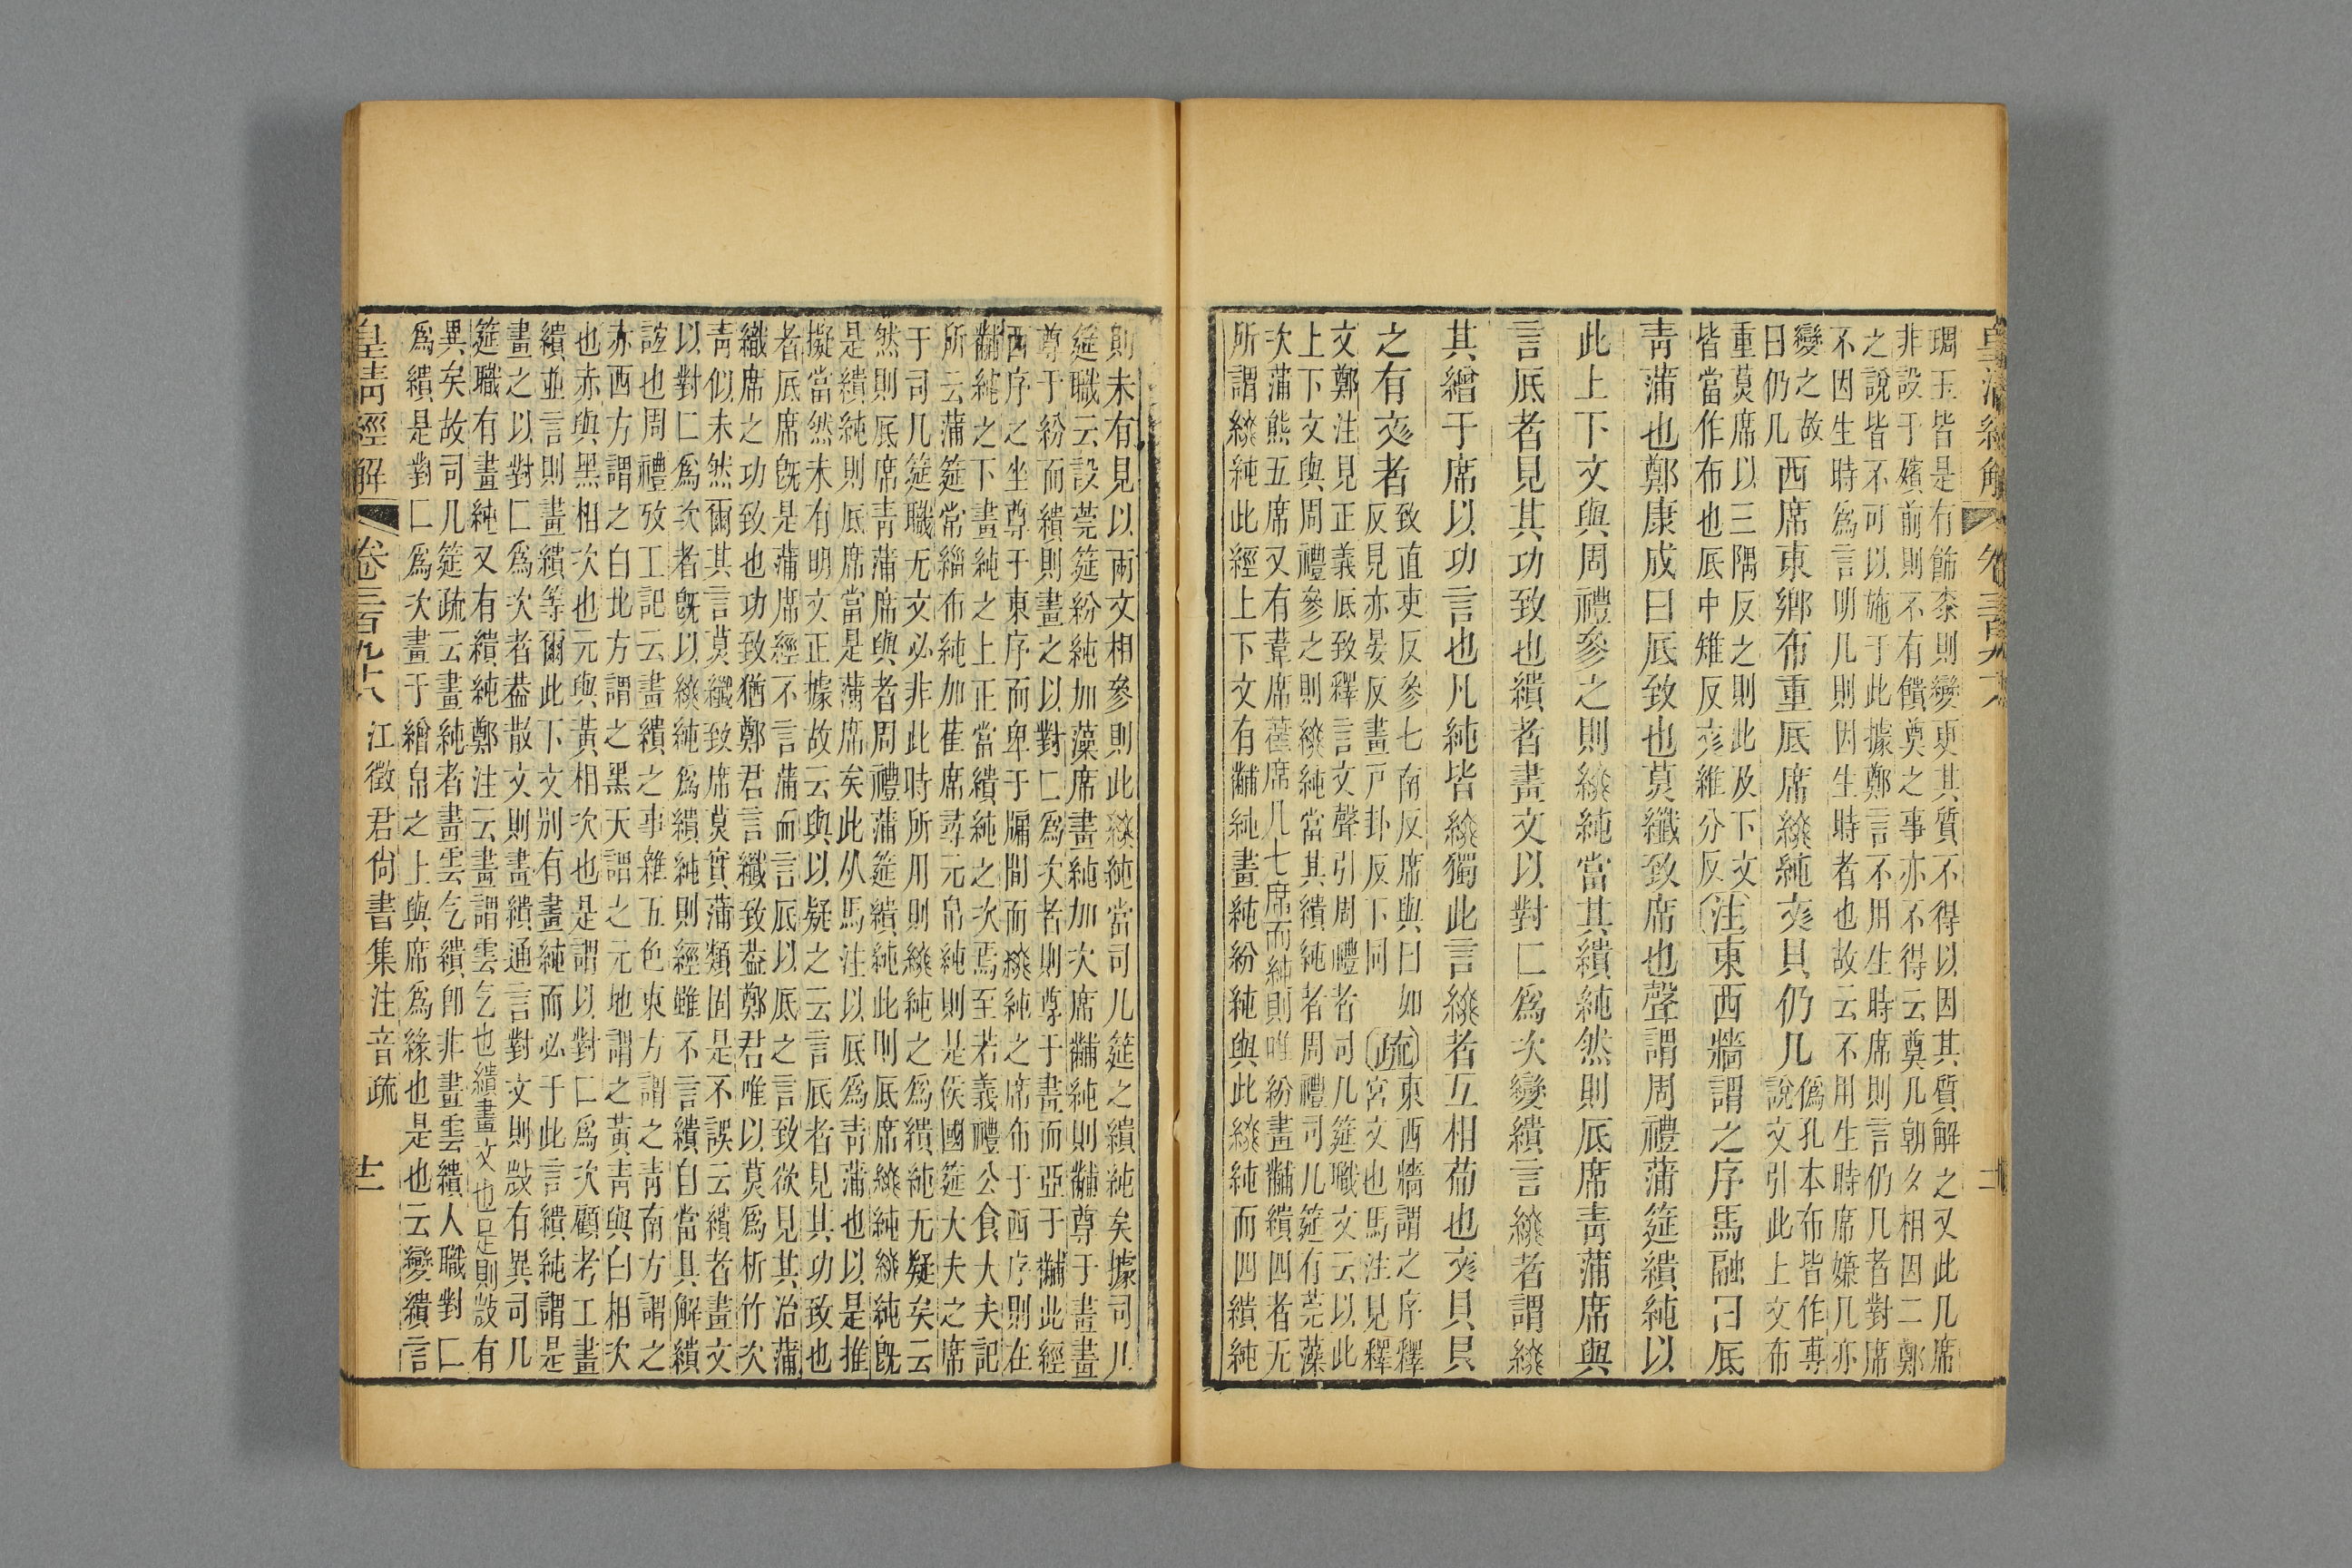 皇清經解 卷三百九十八 二
琱玉皆是有飾桼則變更其質不得以因其質解之又此几席
非設于殯前則不有饋奠之事亦不得云奠几朝夕相因二鄭
之說皆不可以施于此據鄭言不用生時席則言仍几者對席
不因生時爲言明几則因生時者也故云不用生時席嫌几亦
變之故
曰仍几
西席東鄉布重厎席繢純文貝仍几
僞孔本布皆作尃
說文引此上文布
重莫席以三隅反之則此及下文
皆當作布也厎中雉反文雜分反
注東西牆謂之序馬融曰厎
青蒲也鄭康成曰厎致也莫纖致席也聲謂周禮蒲筵繢純以
此上下文與周禮參之則綴純當其繢純然則厎席青蒲席與
言厎者見其功致也繢者畫文以對匚爲次變繢言綴者謂綴
其繒于席以功言也凡純皆綴獨此言綴者互相葡也文貝貝
之有文者
致直吏反參七南反席與曰如
反見亦晏反畫戸卦反下同
疏
東西牆謂之序釋
宮文也馬注見釋
文鄭注見正義厎致釋言文聲引周禮者司几筵職文云以此
上下文與周禮參之則綴純當其繢純者周禮司几筵有莞藻
次蒲熊五席又有葦席萑席凡七席而純則唯紛畫黼繢四者无
所謂綴純此經上下文有黼純畫純紛純與此綴純而四繢純
則未有見以兩文相參則此綴純當司几筵之繢純矣據司几
筵職云設莞筵紛純加藻席畫純加次席黼純則黼尊于畫畫
尊于紛而繢則畫之以對匚爲次者則尊于畫而亞于黼此經
西序之坐尊于東序而卑于牖間而綴純之席布于西序則在
黼純之下畫純之上正當繢純之次焉至若義禮公食大夫記
所云蒲筵常緇布純加萑席尋元帛純則是侯國筵大夫之席
于司几筵職无文必非此時所用則綴純之爲繢純无疑矣云
然則厎席青蒲席與者周禮蒲筵繢純此則厎席綴純綴純旣
是繢純則厎席當是蒲席矣此从馬注以厎爲青蒲也以是推
擬當然未有明文正據故云與以疑之云言厎者見其功致也
者厎席旣是蒲席經不言蒲而言厎以厎之言致欲見其冶蒲
織席之功致也功致猶鄭君言纖致葢鄭君唯以莫爲析竹次
青似未然爾其言莫纖致席莫實蒲類固是不誤云繢者畫文
以對匚爲次者旣以綴純爲繢純則經雖不言繢自當具解繢
誼也周禮攷工記云畫繢之事雜五色東方謂之青南方謂之
赤西方謂之白北方謂之黑天謂之元地謂之黃青與白相次
也赤與黑相次也元與黃相次也是謂以對匚爲次顧考工畫
繢並言則畫繢等爾此下文別有畫純而必于此言繢純謂是
畫之以對匚爲次者葢散文則畫繢通言對文則㪚有異司几
筵職有畫純又有繢純鄭注云畫謂雲气也繢畫文也是則㪚有
異矣故司几筵疏云畫純者畫雲气繢卽非畫雲繢人職對匚
爲繢是對匚爲次畫于繒帛之上與席爲緣也是也云變繢言
皇清經解 卷三百九十八 江徵君尙書集注音疏 二